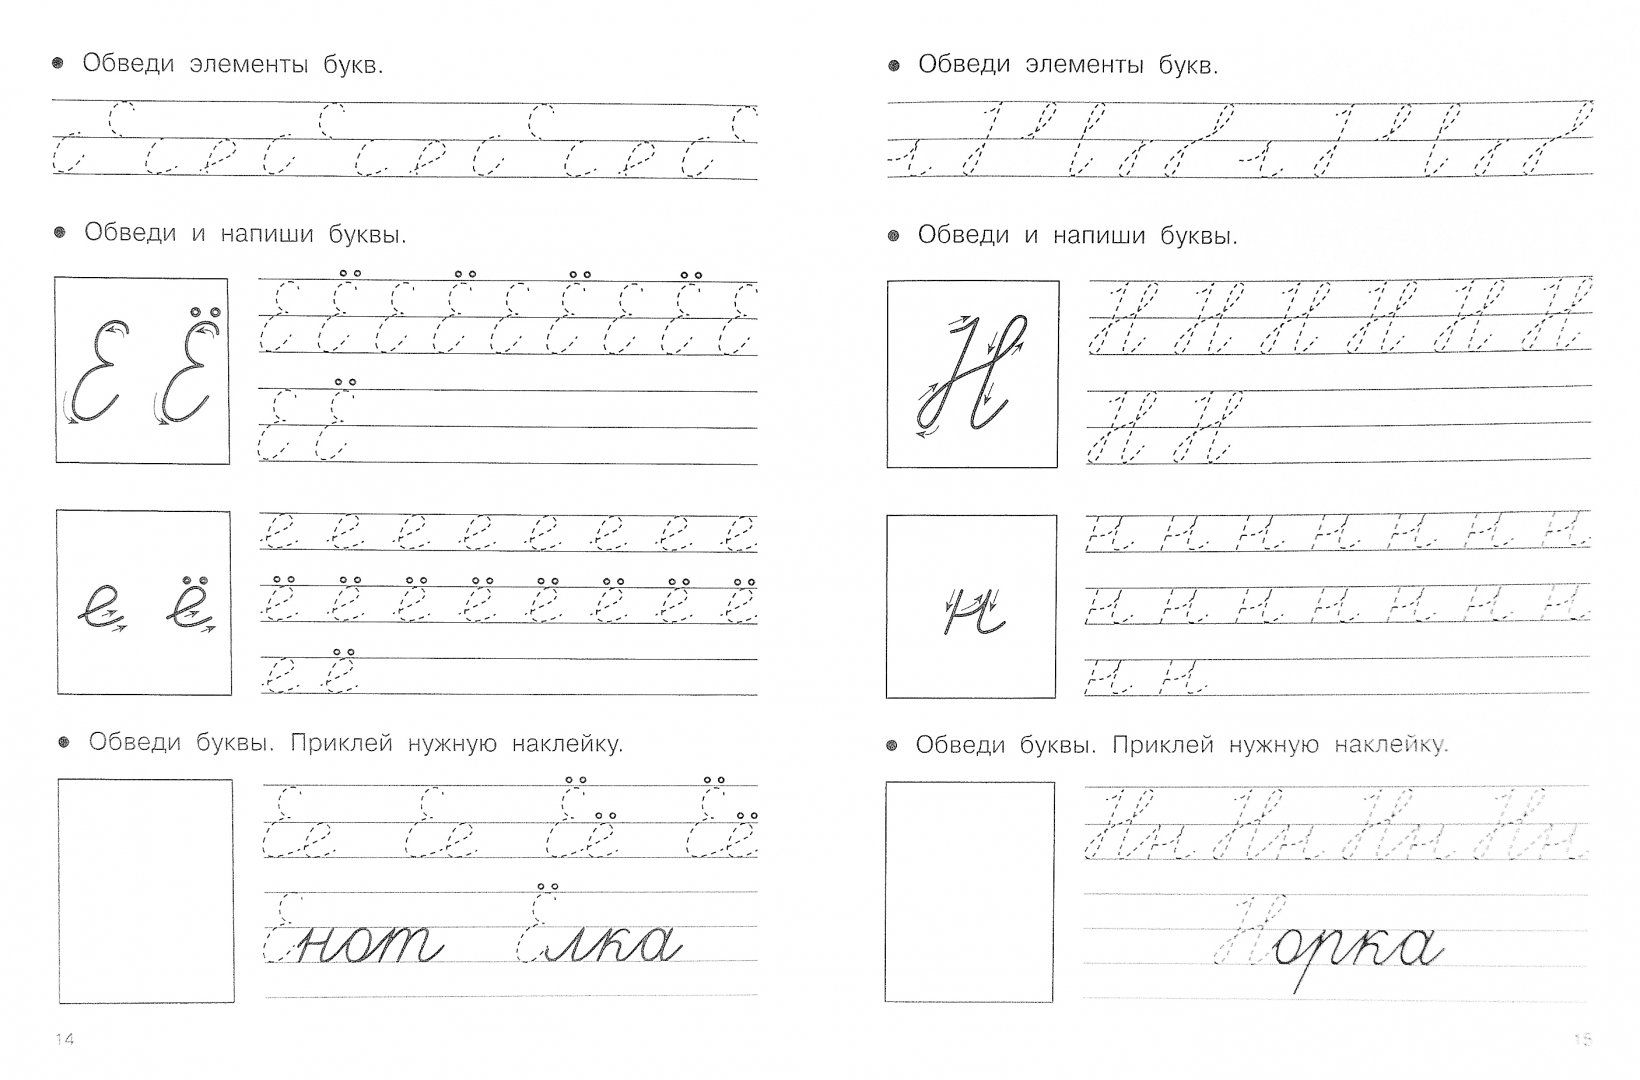 Обведи элементы букв.
Обведи и напиши буквы.
Е Ё
Е Ё Е Ё Е Ё Е Ё Е
Е Ё
е ё
е е е е е е е е
ё ё ё ё ё ё ё ё
е ё
Обведи буквы. Приклей нужную наклейку.
Ее Ее Ёё Ёё
Енот Ёлка
14
Обведи элементы букв.
Обведи и напиши буквы.
Н
Н Н Н Н Н Н
Н Н
н
н н н н н н н
н н н н н н н
н н
Обведи буквы. Приклей нужную наклейку.
Нн Нн Нн Нн
Норка
15